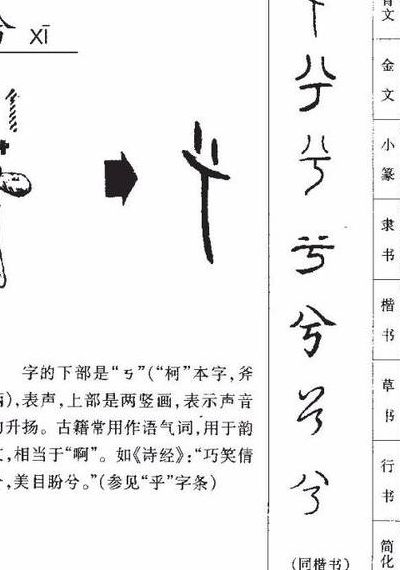 兮 xī
字的下部是“丂”(“柯”本字，斧
柄)，表声，上部是两竖画，表示声音
的升扬。古籍常用作语气词，用于韵
文，相当于“啊”。如《诗经》：“巧笑倩
兮，美目盼兮。”(参见“乎”字条)
兮
兮
兮
兮
兮
兮
(同楷书)
骨文
金文
小篆
隶书
楷书
草书
行书
简化